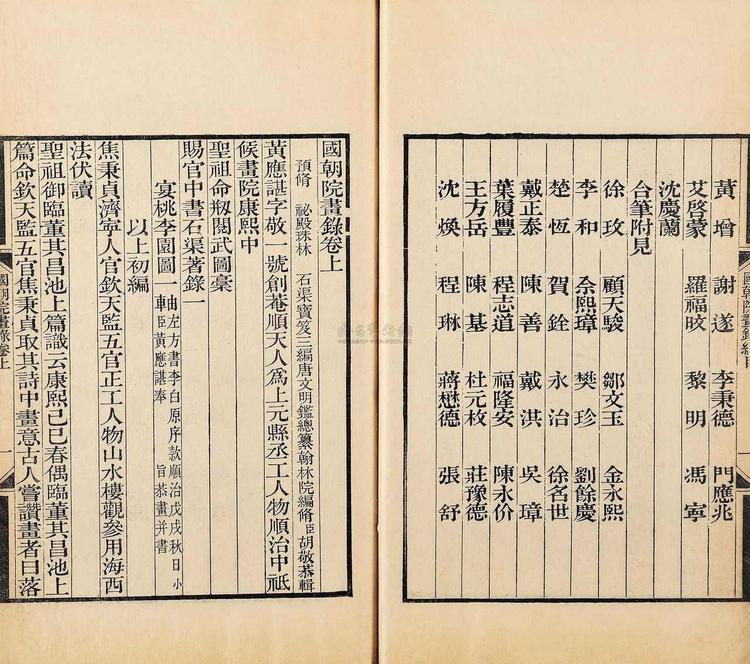 黃增 謝遂 李秉德 門應兆
艾啓蒙 羅福旼 黎明 馮寧
沈慶蘭
台筆附見
徐玫 顧天駿 鄒文玉 金永熙
李和 余熙璋 樊珍 劉餘慶
楚恆 賀銓 永治 徐名世
戴正泰 陳善 戴洪 吳璋
葉履豐 程志道 福隆安 陳永价
王方岳 陳基 杜元枚 莊豫德
沈煥 程琳 蔣懋德 張舒
國朝院畫錄
國朝院畫錄卷上
預脩 祕殿珠林 石渠寶笈三編唐文明鑑總纂翰林院編脩臣胡敬恭輯
黃應諶字敬一號創菴順天人爲上元縣丞工人物順治中祗
候畫院康熙中
聖祖命刱閱武圖槀
賜官中書石渠著錄一
宴桃李園圖一
左方書李白原序款順治戊戌秋日小
臣黃應諶奉 旨恭畫并書
以上初編
焦秉貞濟寧人官欽天監五官正工人物山水樓觀參用海西
法伏讀
聖祖御臨董其昌池上篇識云康熙己巳春偶臨董其昌池上
篇命欽天監五官焦秉貞取其詩中畫意古人嘗讚畫者曰落
國朝院畫錄卷上 一